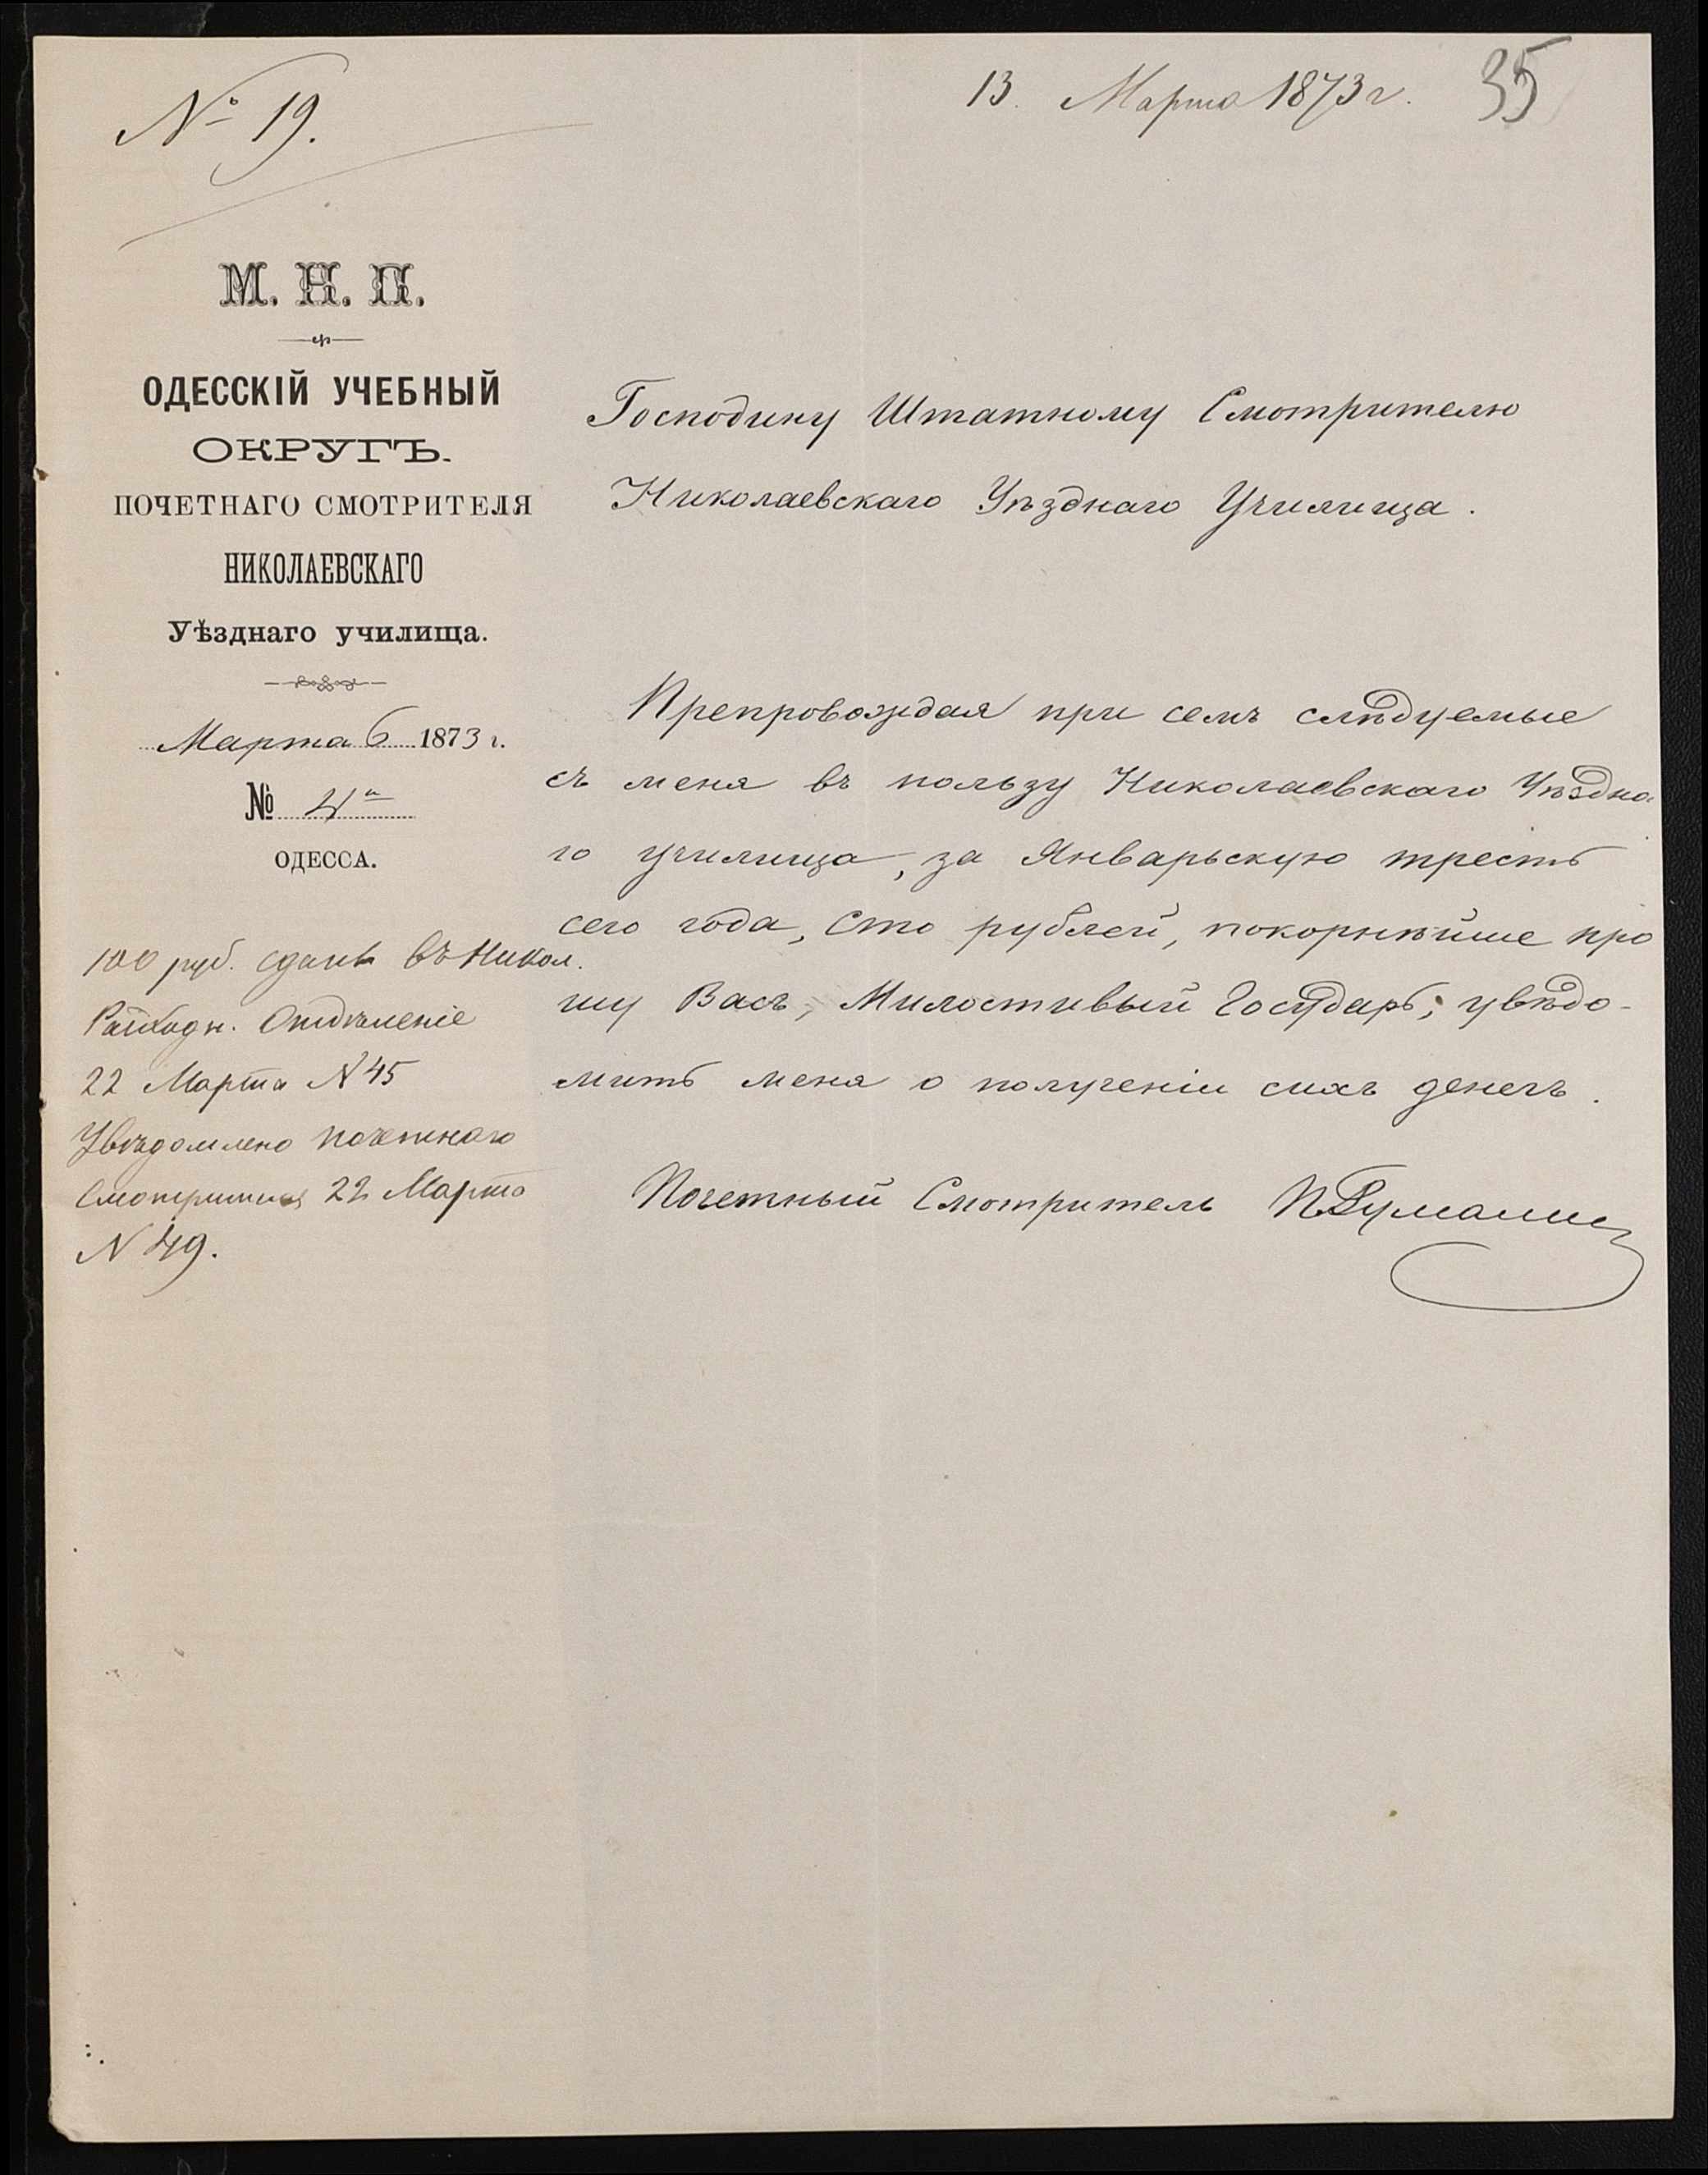 № 19.
13. Марта 1873 г.
35
М. Н. П.
ОДЕССКІЙ УЧЕБНЫЙ
ОКРУГЪ.
ПОЧЕТНАГО СМОТРИТЕЛЯ
НИКОЛАЕВСКАГО
Уѣзднаго училища.
Марта 6 1873 г.
№ 4й
ОДЕССА.
Господину Штатному Смотрителю
Николаевскаго Уѣзднаго Училища.
Препровождая при семъ слѣдуемые
съ меня въ пользу Николаевскаго Уѣздна
го училища, за Январьскую треть
сего года, Сто рублей, покорнѣйше про
шу Васъ, Милостивый Государь, увѣдо-
мить меня о полученіи сихъ денегъ.
Почетный Смотритель П.
100 руб. сданы въ Никол.
Отдѣленіе
22 Марта N 45
Увѣдомлено почетнаго
Смотрителя 22 Марта
N 49.